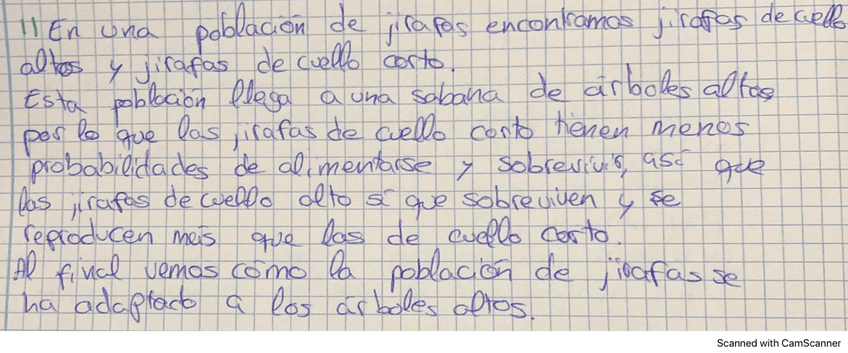 11 En una población de jirafas encontramos jirafas de cuello
altos y jirafas de cuello corto.
Esta población llega a una sabana de árboles altos
por lo que las jirafas de cuello corto tienen menos
probabilidades de alimentarse y sobrevivir, así que
las jirafas de cuello alto sí que sobreviven y se
reproducen más que las de cuello corto.
Al final vemos cómo la población de jirafas se
ha adaptado a los árboles altos.
Scanned with CamScanner